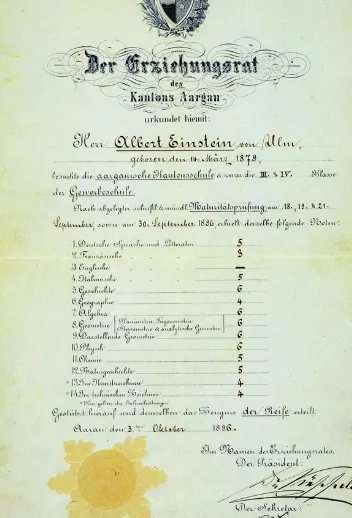 Der Erziehungsrat
des
Kantons Aargau
urkundet hiemit:
Herr Albert Einstein von Ulm,
geboren den 14. März 1879,
besuchte die aargauische Kantonsschule & zwar die III. & IV. Klasse
der Gewerbeschule.
Nach abgelegter schriftl. & mündl. Maturitätsprüfung am 18., 19. & 21.
September, sowie am 30. September 1896, erhielt derselbe folgende Noten:
1. Deutsche Sprache und Literatur 5
2. Französische " " 3
3. Englische " " —
4. Italienische " " 5
5. Geschichte 6
6. Geographie 4
7. Algebra 6
8. Geometrie (Planimetrie, Trigonometrie, Stereometrie & analytische Geometrie) 6
9. Darstellende Geometrie 6
10. Physik 6
11. Chemie 5
12. Naturgeschichte 5
* 13. Im Kunstzeichnen 4
* 14. Im technischen Zeichnen 4
* Hier gelten die Jahresleistungen.
Gestützt hierauf wird demselben das Zeugnis der Reife erteilt.
Aarau den 3ten Oktober 1896.
Im Namen des Erziehungsrates,
Der Präsident:
Der Sekretär: